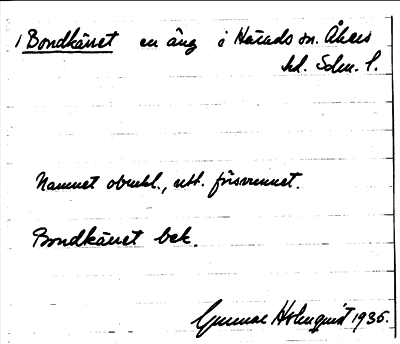 1 Bondkärret en äng i Härads sn. Åkers
hd. Sdm. l.
Namnet obekl., utt. försvunnet.
Bondkärret bek.
Gunnar Holmquist 1935.